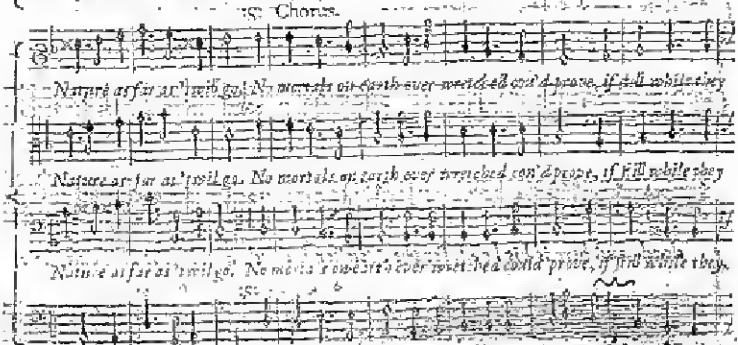 :S: Chorus.
Nature as far as 'twil go. No mortals on earth ever wretched cou'd prove, if still while they
Nature as far as 'twil go. No mortals on earth ever wretched cou'd prove, if still while they
Nature as far as 'twil go. No mortals on earth ever wretched could prove, if still while they,
:S: 6